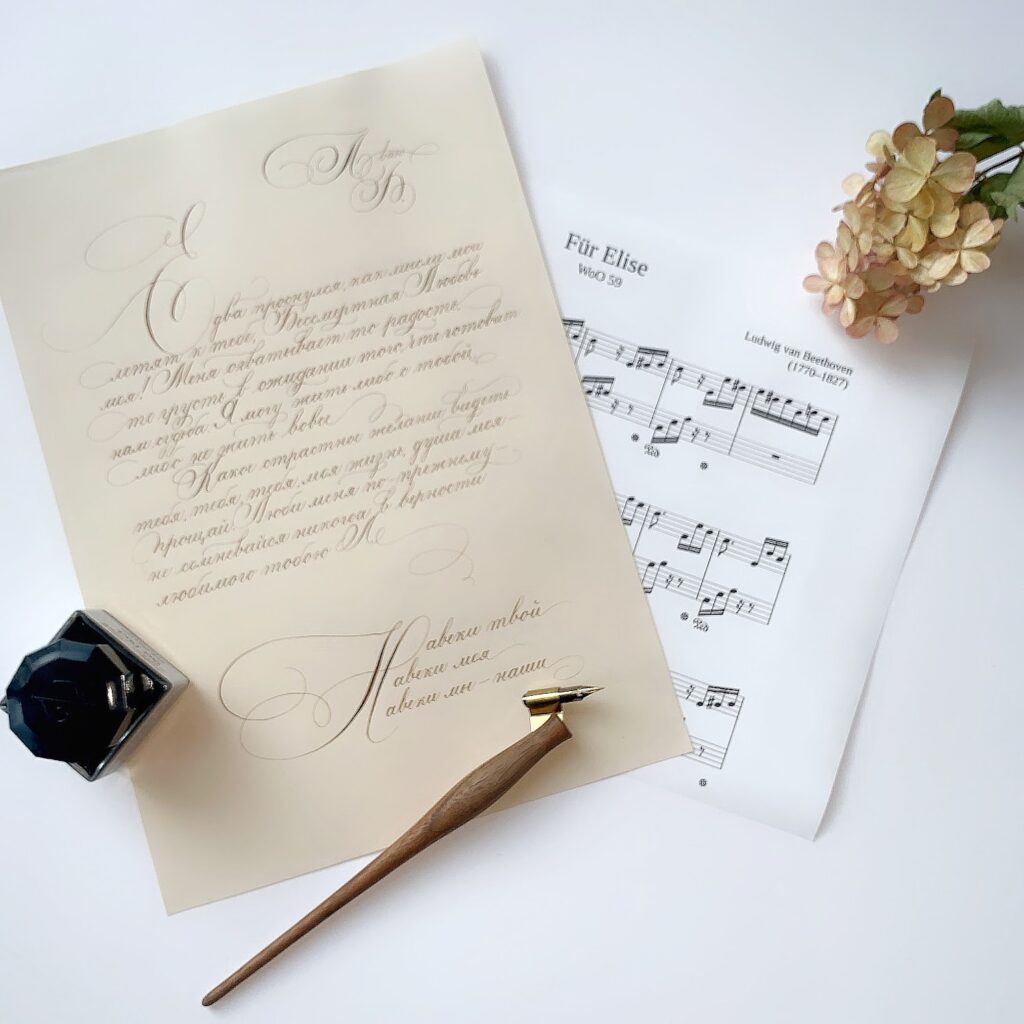 Л ван Б.
Едва проснулся, как мысли мои
летят к тебе, Бессмертная Любовь
моя! Меня охватывает то радость,
то грусть в ожидании того, что готовит
нам судьба. Я могу жить либо с тобой,
либо не жить вовсе.
Какое страстное желание видеть
тебя, тебя, тебя, моя жизнь, душа моя –
прощай! Люби меня по-прежнему –
не сомневайся никогда в верности
любимого тобою Л
Навеки твой
Навеки моя
Навеки мы – наши
Für Elise
WoO 59
Ludwig van Beethoven
(1770–1827)